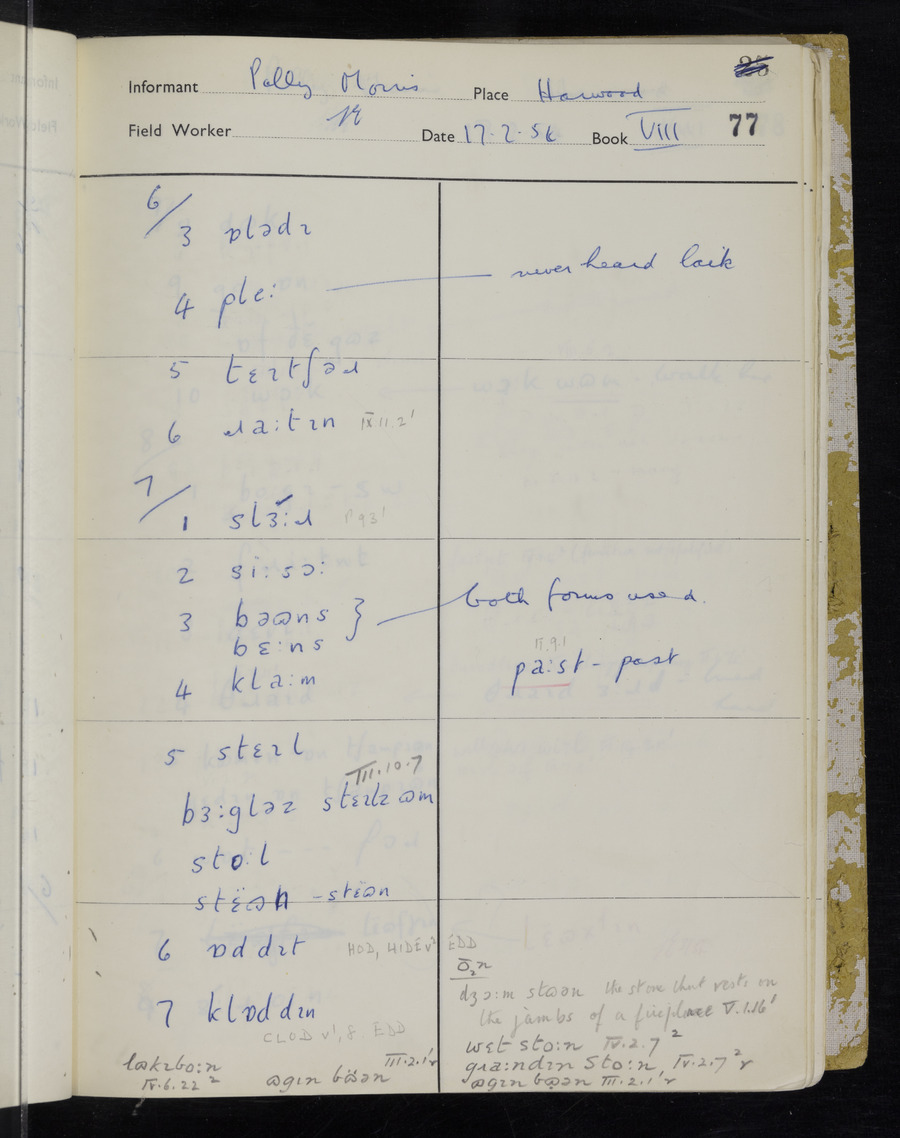 Informant Polly Morris Place Harwood
Field Worker Date 17.2.54 Book VIII 77
6/
3 ɒlədɪ
4 ple: never heard laik
5 tɛɪtʃəɹ
6 ɹa:tɪn IX.11.2'
7/
1 slɜ:ɹ P 93'
2 si:sɔ:
3 bəɷns } both forms used.
bɛ:ns
IV.9.1
4 kla:m pa:st - past
5 stɛɪl
III.10.7
bɜ:gləz stɛɪlz ɷm
sto:l
stëɷn - stëɷn
6 ɒddɪt HOD, HIDE v² EDD
ō₂n
7 klɒddɪn dʒɔ:m stɷən the stone that rests on
the jambs of a fireplace V.1.16'
CLOD v', 8 EDD
wɛt sto:n IV.2.7²
lɷkɪbo:n III.2.1'r gɹa:ndɪn sto:n, IV.2.7²r
IV.6.22² ɷgɪn bɷ̈ən ɷgɪn bɷən III.2.1'r